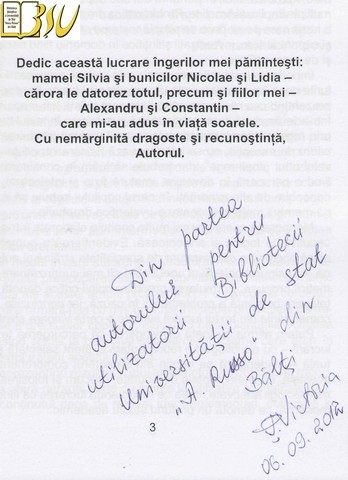 BSU
Dedic această lucrare îngerilor mei pământeşti:
mamei Silvia şi bunicilor Nicolae şi Lidia –
cărora le datorez totul, precum şi fiilor mei –
Alexandru şi Constantin –
care mi-au adus în viaţă soarele.
Cu nemărginită dragoste şi recunoştinţă,
Autorul.
Din partea
autorului pentru
utilizatorii Bibliotecii
Universităţii de stat
„A. Russo" din
Bălţi
Victoria
06.09.2012
3